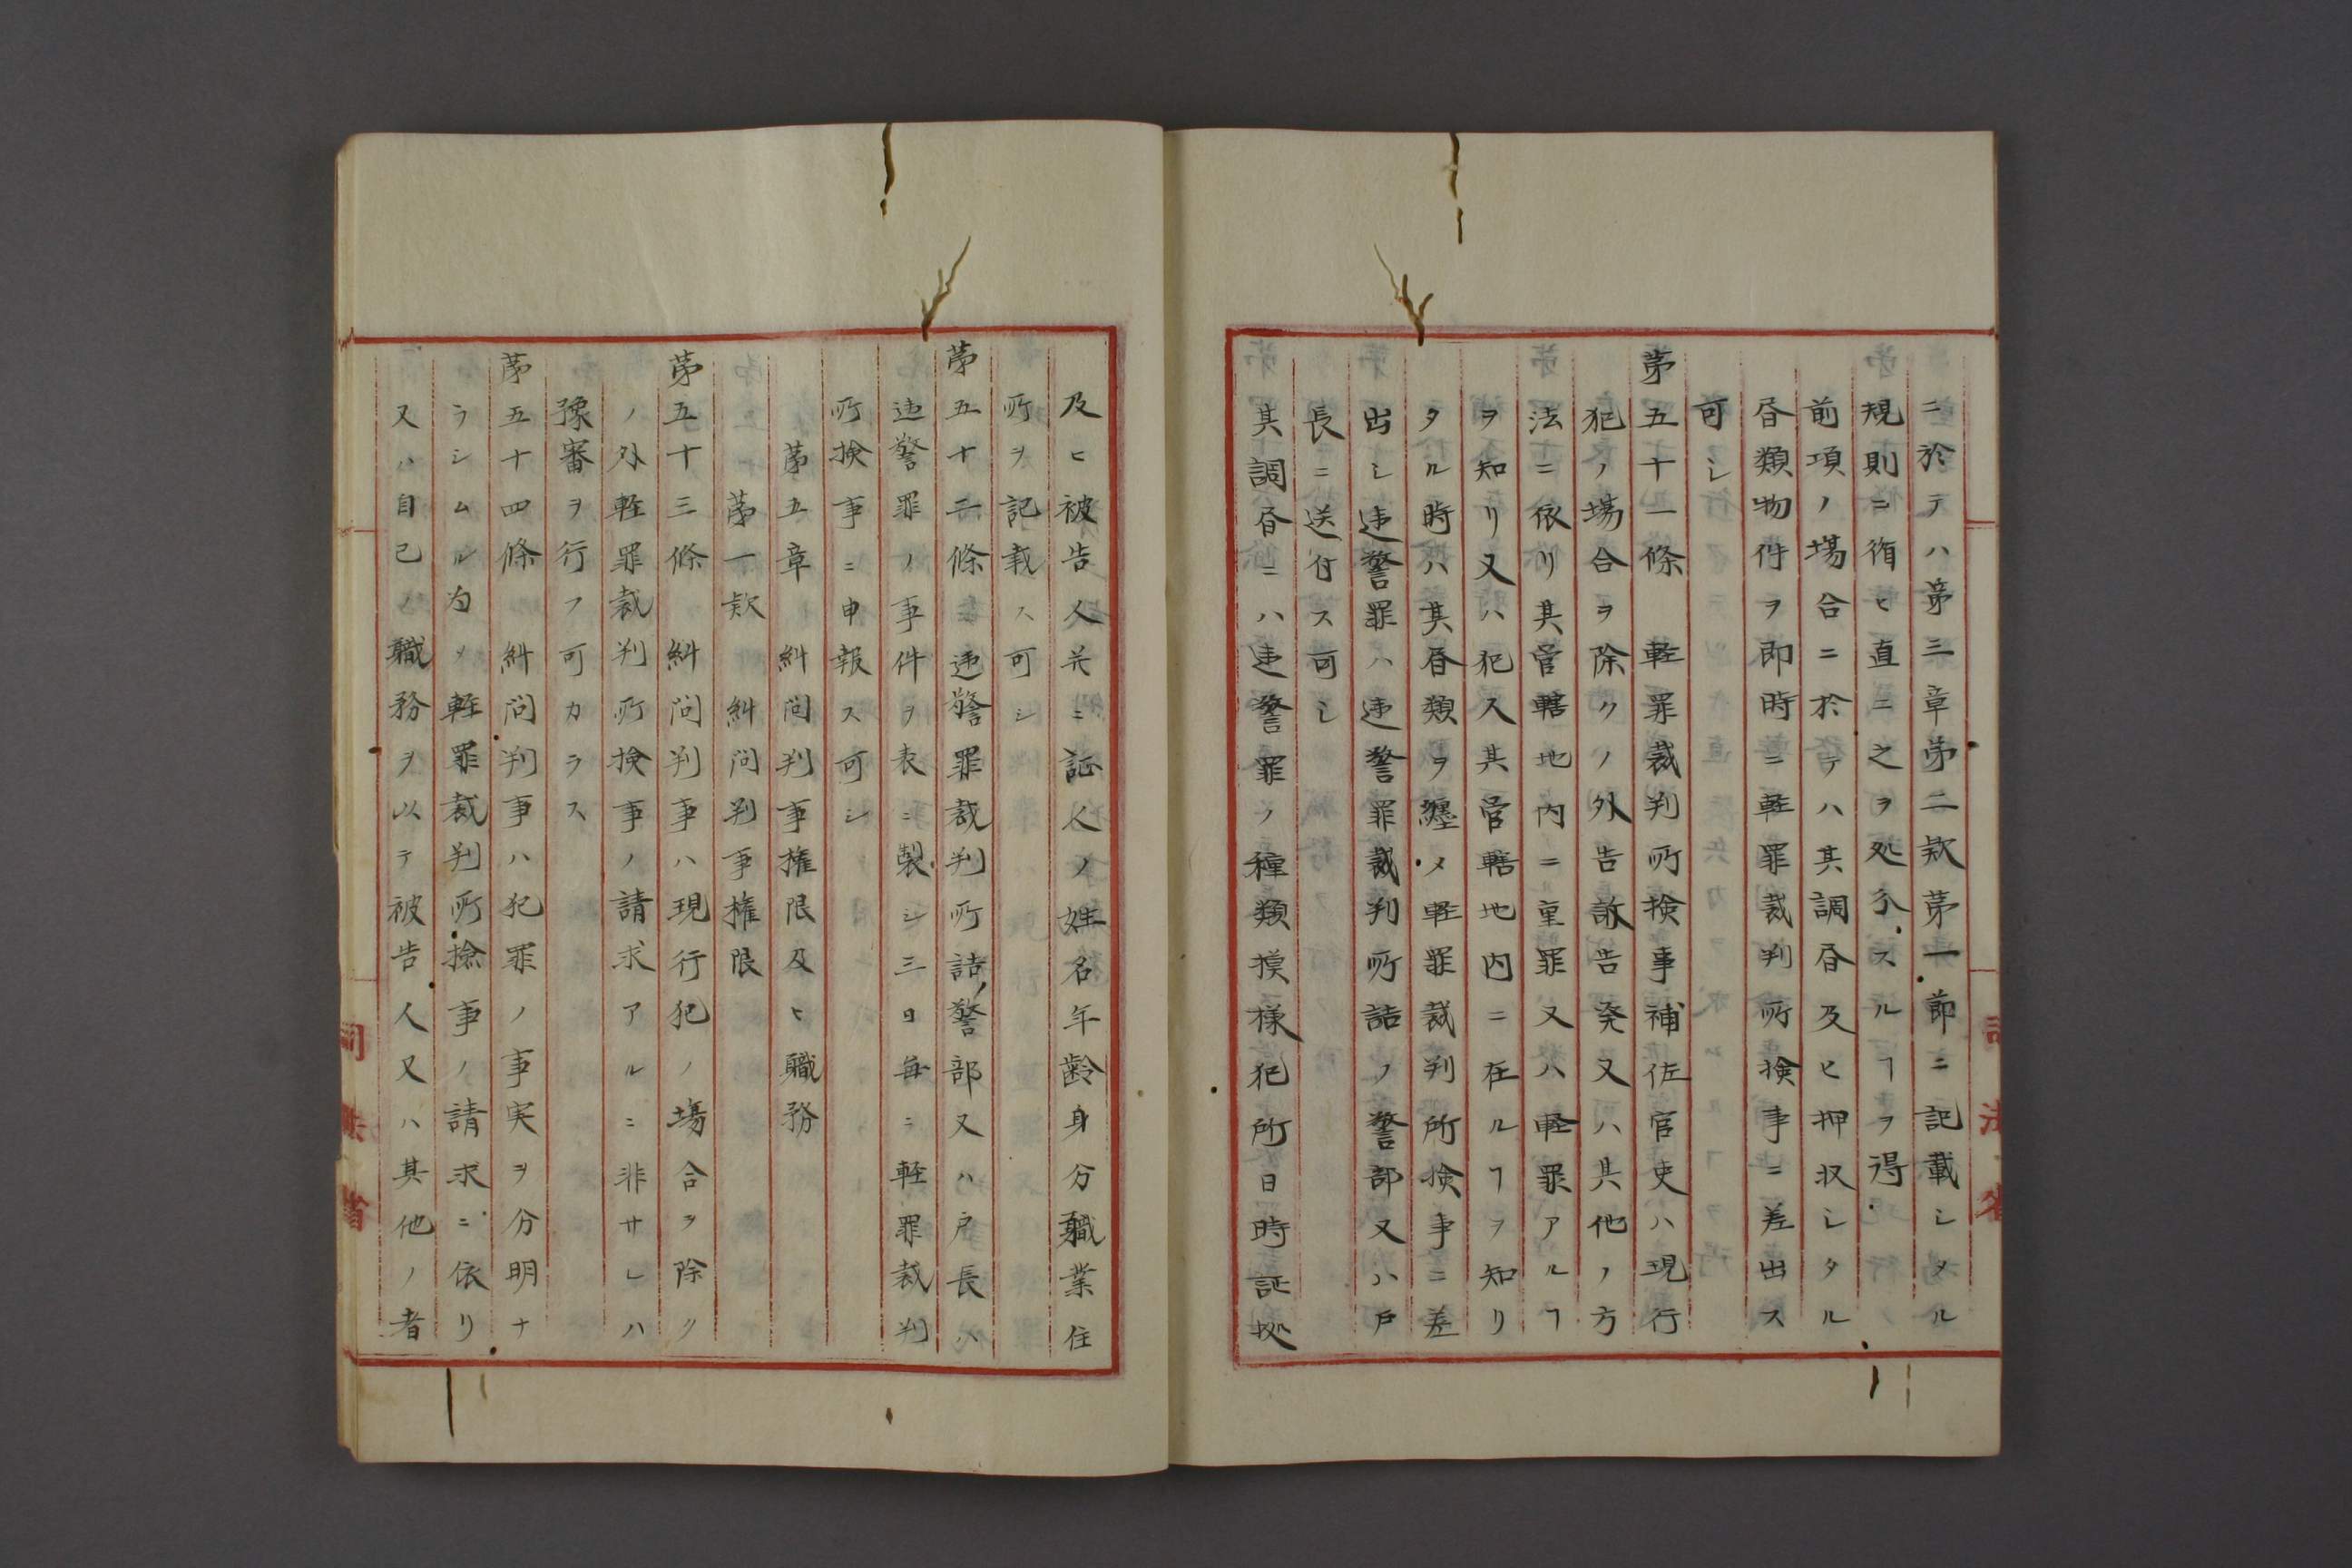 ニ於テハ第三章第二欵第一節ニ記載シタル
規則ニ循ヒ直ニ之ヲ処分スルヿヲ得
前項ノ場合ニ於テハ其調書及ヒ押収シタル
書類物件ヲ即時ニ軽罪裁判所検事ニ差出ス
可シ
第五十一條　軽罪裁判所検事補佐官吏ハ現行
犯ノ場合ヲ除クノ外告訴告発又ハ其他ノ方
法ニ依リ其管轄地内ニ重罪又ハ軽罪アルヿ
ヲ知リ又ハ犯人其管轄地内ニ在ルヿヲ知リ
タル時ハ其書類ヲ纏メ軽罪裁判所検事ニ差
出シ違警罪ハ違警罪裁判所詰ノ警部又ハ戸
長ニ送付ス可シ
其調書ニハ違警罪ノ種類摸様犯所日時証拠
及ヒ被告人并ニ証人ノ姓名年齢身分職業住
所ヲ記載ス可シ
第五十二條　違警罪裁判所詰警部又ハ戸長ハ
違警罪ノ事件ヲ表ニ製シ三日毎ニ軽罪裁判
所検事ニ申報ス可シ
第五章　糾問判事権限及ヒ職務
第一欵　糾問判事権限
第五十三條　糾問判事ハ現行犯ノ場合ヲ除ク
ノ外軽罪裁判所検事ノ請求アルニ非サレハ
豫審ヲ行フ可カラス
第五十四條　糾問判事ハ犯罪ノ事実ヲ分明ナ
ラシムル為メ軽罪裁判所撿事ノ請求ニ依リ
又ハ自己ノ職務ヲ以テ被告人又ハ其他ノ者
司法省